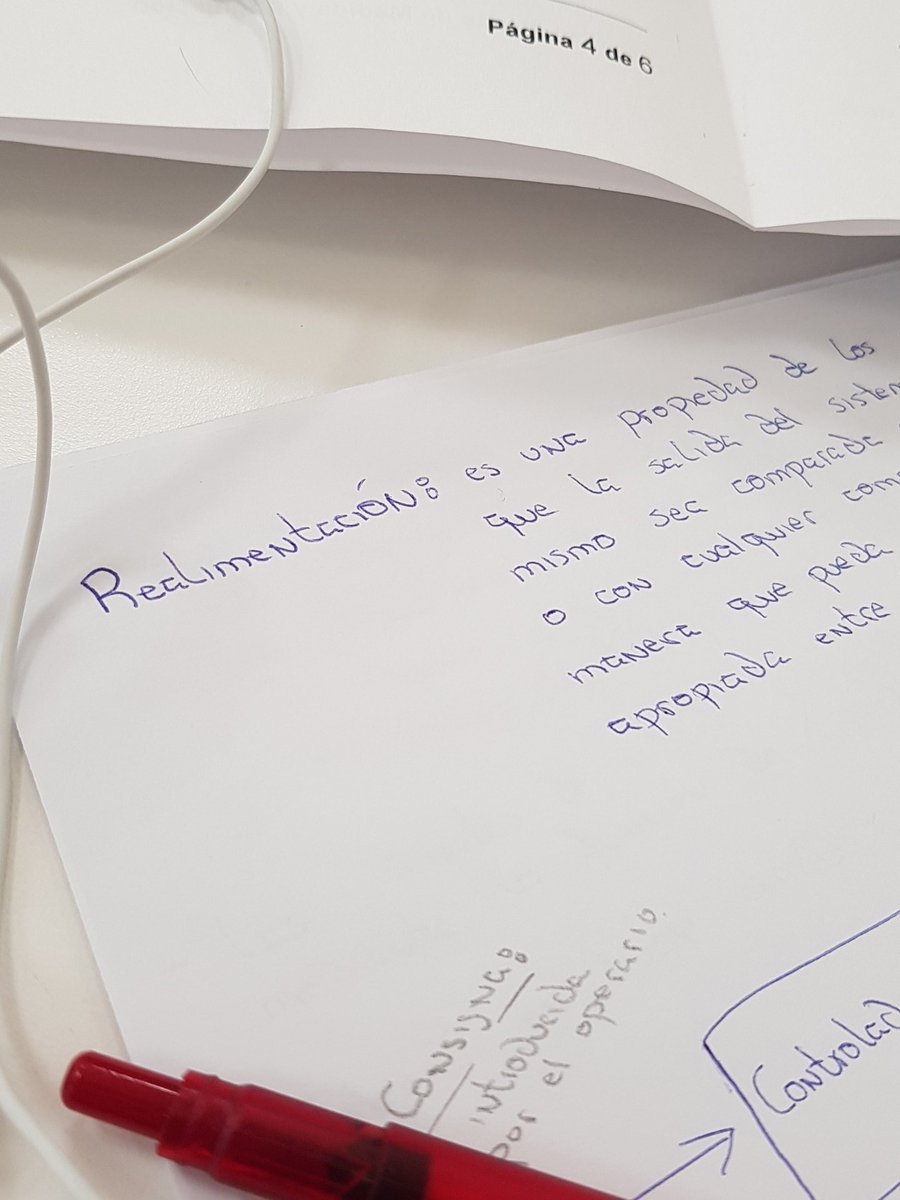 Página 4 de 6
Realimentación: es una propiedad de los
que la salida del
mismo sea comparada
o con cualquier
manera que pueda
apropiada entre
Consigna:
introducida
por el operario